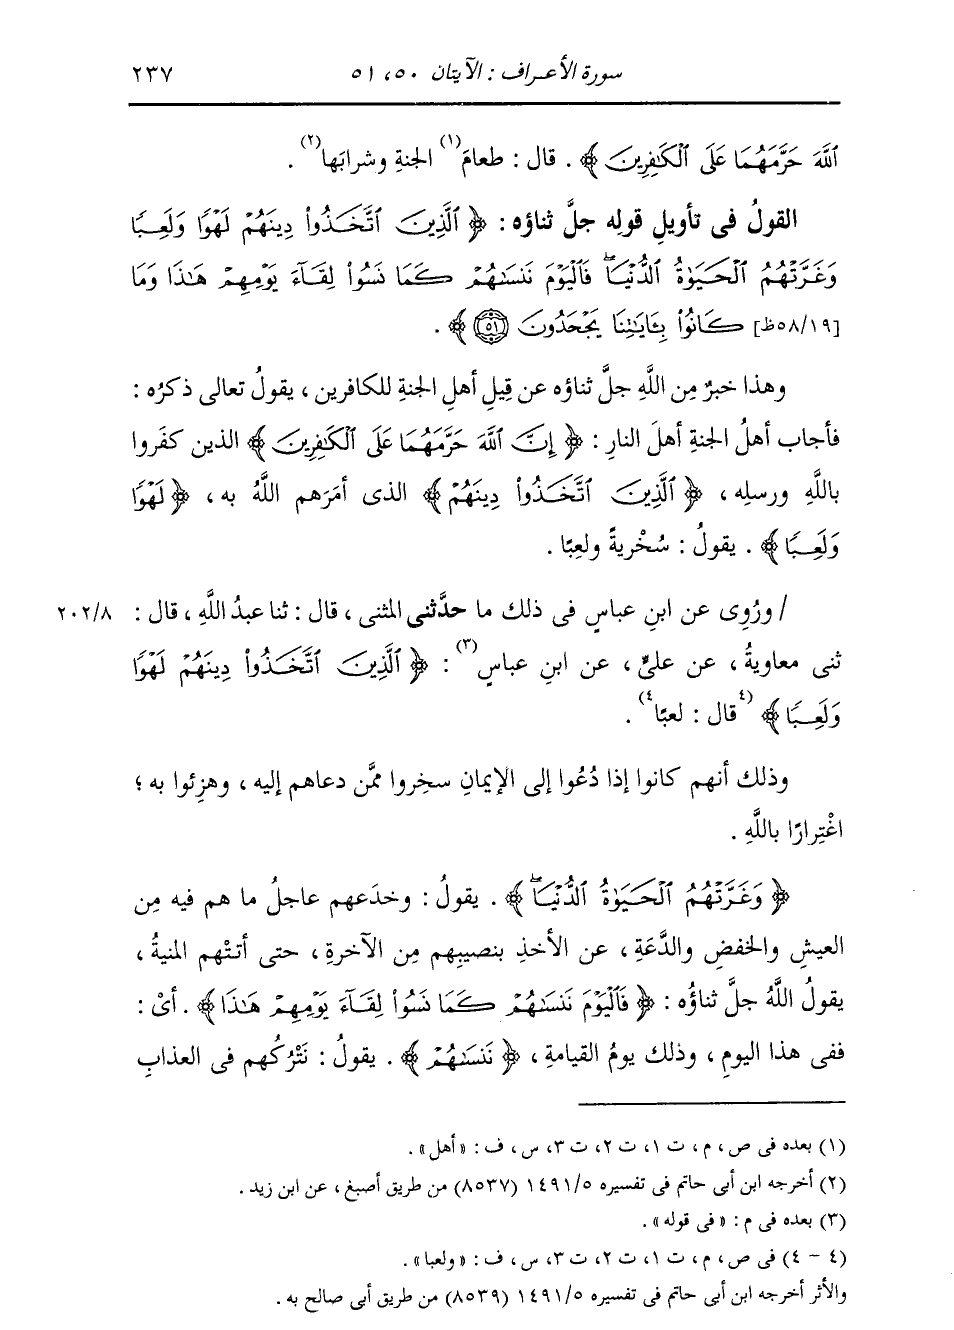 سورة الأعراف : الآيتان ٥٠، ٥١ ٢٣٧
ٱللَّهَ حَرَّمَهُمَا عَلَى ٱلْكَٰفِرِينَ﴾ . قال : طعامَ(١) الجنةِ وشرابَها(٢) .
القولُ فى تأويلِ قولِه جلَّ ثناؤه : ﴿ٱلَّذِينَ ٱتَّخَذُوا۟ دِينَهُمْ لَهْوًا وَلَعِبًا
وَغَرَّتْهُمُ ٱلْحَيَوٰةُ ٱلدُّنْيَا ۚ فَٱلْيَوْمَ نَنسَىٰهُمْ كَمَا نَسُوا۟ لِقَآءَ يَوْمِهِمْ هَٰذَا وَمَا
[٥٨/١٩ظ] كَانُوا۟ بِـَٔايَٰتِنَا يَجْحَدُونَ ٥١﴾ .
وهذا خبرٌ مِن اللَّهِ جلَّ ثناؤه عن قِيلِ أهلِ الجنةِ للكافرين ، يقولُ تعالى ذكرُه :
فأجاب أهلُ الجنةِ أهلَ النارِ : ﴿إِنَّ ٱللَّهَ حَرَّمَهُمَا عَلَى ٱلْكَٰفِرِينَ﴾ الذين كفَروا
باللَّهِ ورسلِه ، ﴿ٱلَّذِينَ ٱتَّخَذُوا۟ دِينَهُمْ﴾ الذى أمَرَهم اللَّهُ به ، ﴿لَهْوًا
وَلَعِبًا﴾ . يقولُ : سُخْريةً ولعِبًا .
/ ورُوِى عن ابنِ عباسٍ فى ذلك ما حدَّثنى المثنى ، قال : ثنا عبدُ اللَّهِ ، قال : ٢٠٢/٨
ثنى معاويةُ ، عن علىٍّ ، عن ابنِ عباسٍ(٣) : ﴿ٱلَّذِينَ ٱتَّخَذُوا۟ دِينَهُمْ لَهْوًا
وَلَعِبًا﴾ (٤قال : لعبًا٤) .
وذلك أنهم كانوا إذا دُعُوا إلى الإيمانِ سخِروا ممَّن دعاهم إليه ، وهزِئوا به ؛
اغْتِرارًا باللَّهِ .
﴿وَغَرَّتْهُمُ ٱلْحَيَوٰةُ ٱلدُّنْيَا ۚ﴾ . يقولُ : وخدَعهم عاجلُ ما هم فيه مِن
العيشِ والخفضِ والدَّعَةِ ، عن الأخذِ بنصيبِهم مِن الآخرةِ ، حتى أتتْهم المنيةُ ،
يقولُ اللَّهُ جلَّ ثناؤُه : ﴿فَٱلْيَوْمَ نَنسَىٰهُمْ كَمَا نَسُوا۟ لِقَآءَ يَوْمِهِمْ هَٰذَا﴾ . أىْ :
ففى هذا اليومِ ، وذلك يومُ القيامةِ ، ﴿نَنسَىٰهُمْ﴾ . يقولُ : نَتْرُكُهم فى العذابِ
(١) بعده فى ص ، م ، ت ١، ت ٢، ت ٣، س ، ف : « أهل» .
(٢) أخرجه ابن أبى حاتم فى تفسيره ١٤٩١/٥ (٨٥٣٧) من طريق أصبغ ، عن ابن زيد .
(٣) بعده فى م : « فى قوله» .
(٤ - ٤) فى ص ، م ، ت ١، ت ٢، ت ٣، س ، ف : «ولعبا» .
والأثر أخرجه ابن أبى حاتم فى تفسيره ١٤٩١/٥ (٨٥٣٩) من طريق أبى صالح به .